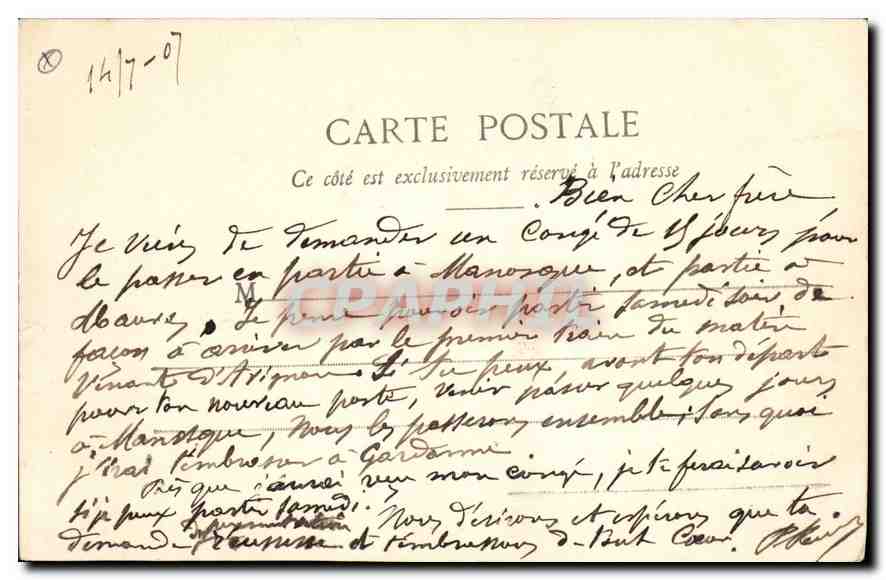 14/7-07
CARTE POSTALE
Ce côté est exclusivement réservé à l'adresse
Bien Cher frère
Je viens de demander un Congé de 15 jours pour
le passer en partie à Manosque, et partie à
M
Je pense pouvoir partir samedi soir de
façon à arriver par le premier train du matin
Venant d'Avignon. Si tu peux, avant ton départ
pour ton nouveau poste, venir passer quelques jours
à Manosque, nous les passerons ensemble; sans quoi
j'irai t'embrasser à Gardanne
Dès que j'aurai reçu mon congé, je te ferai savoir
si je peux partir samedi.
d'augmentation
Nous désirons et espérons que ta
demande réussisse et t'embrassons de tout Cœur.
CPARHAMA